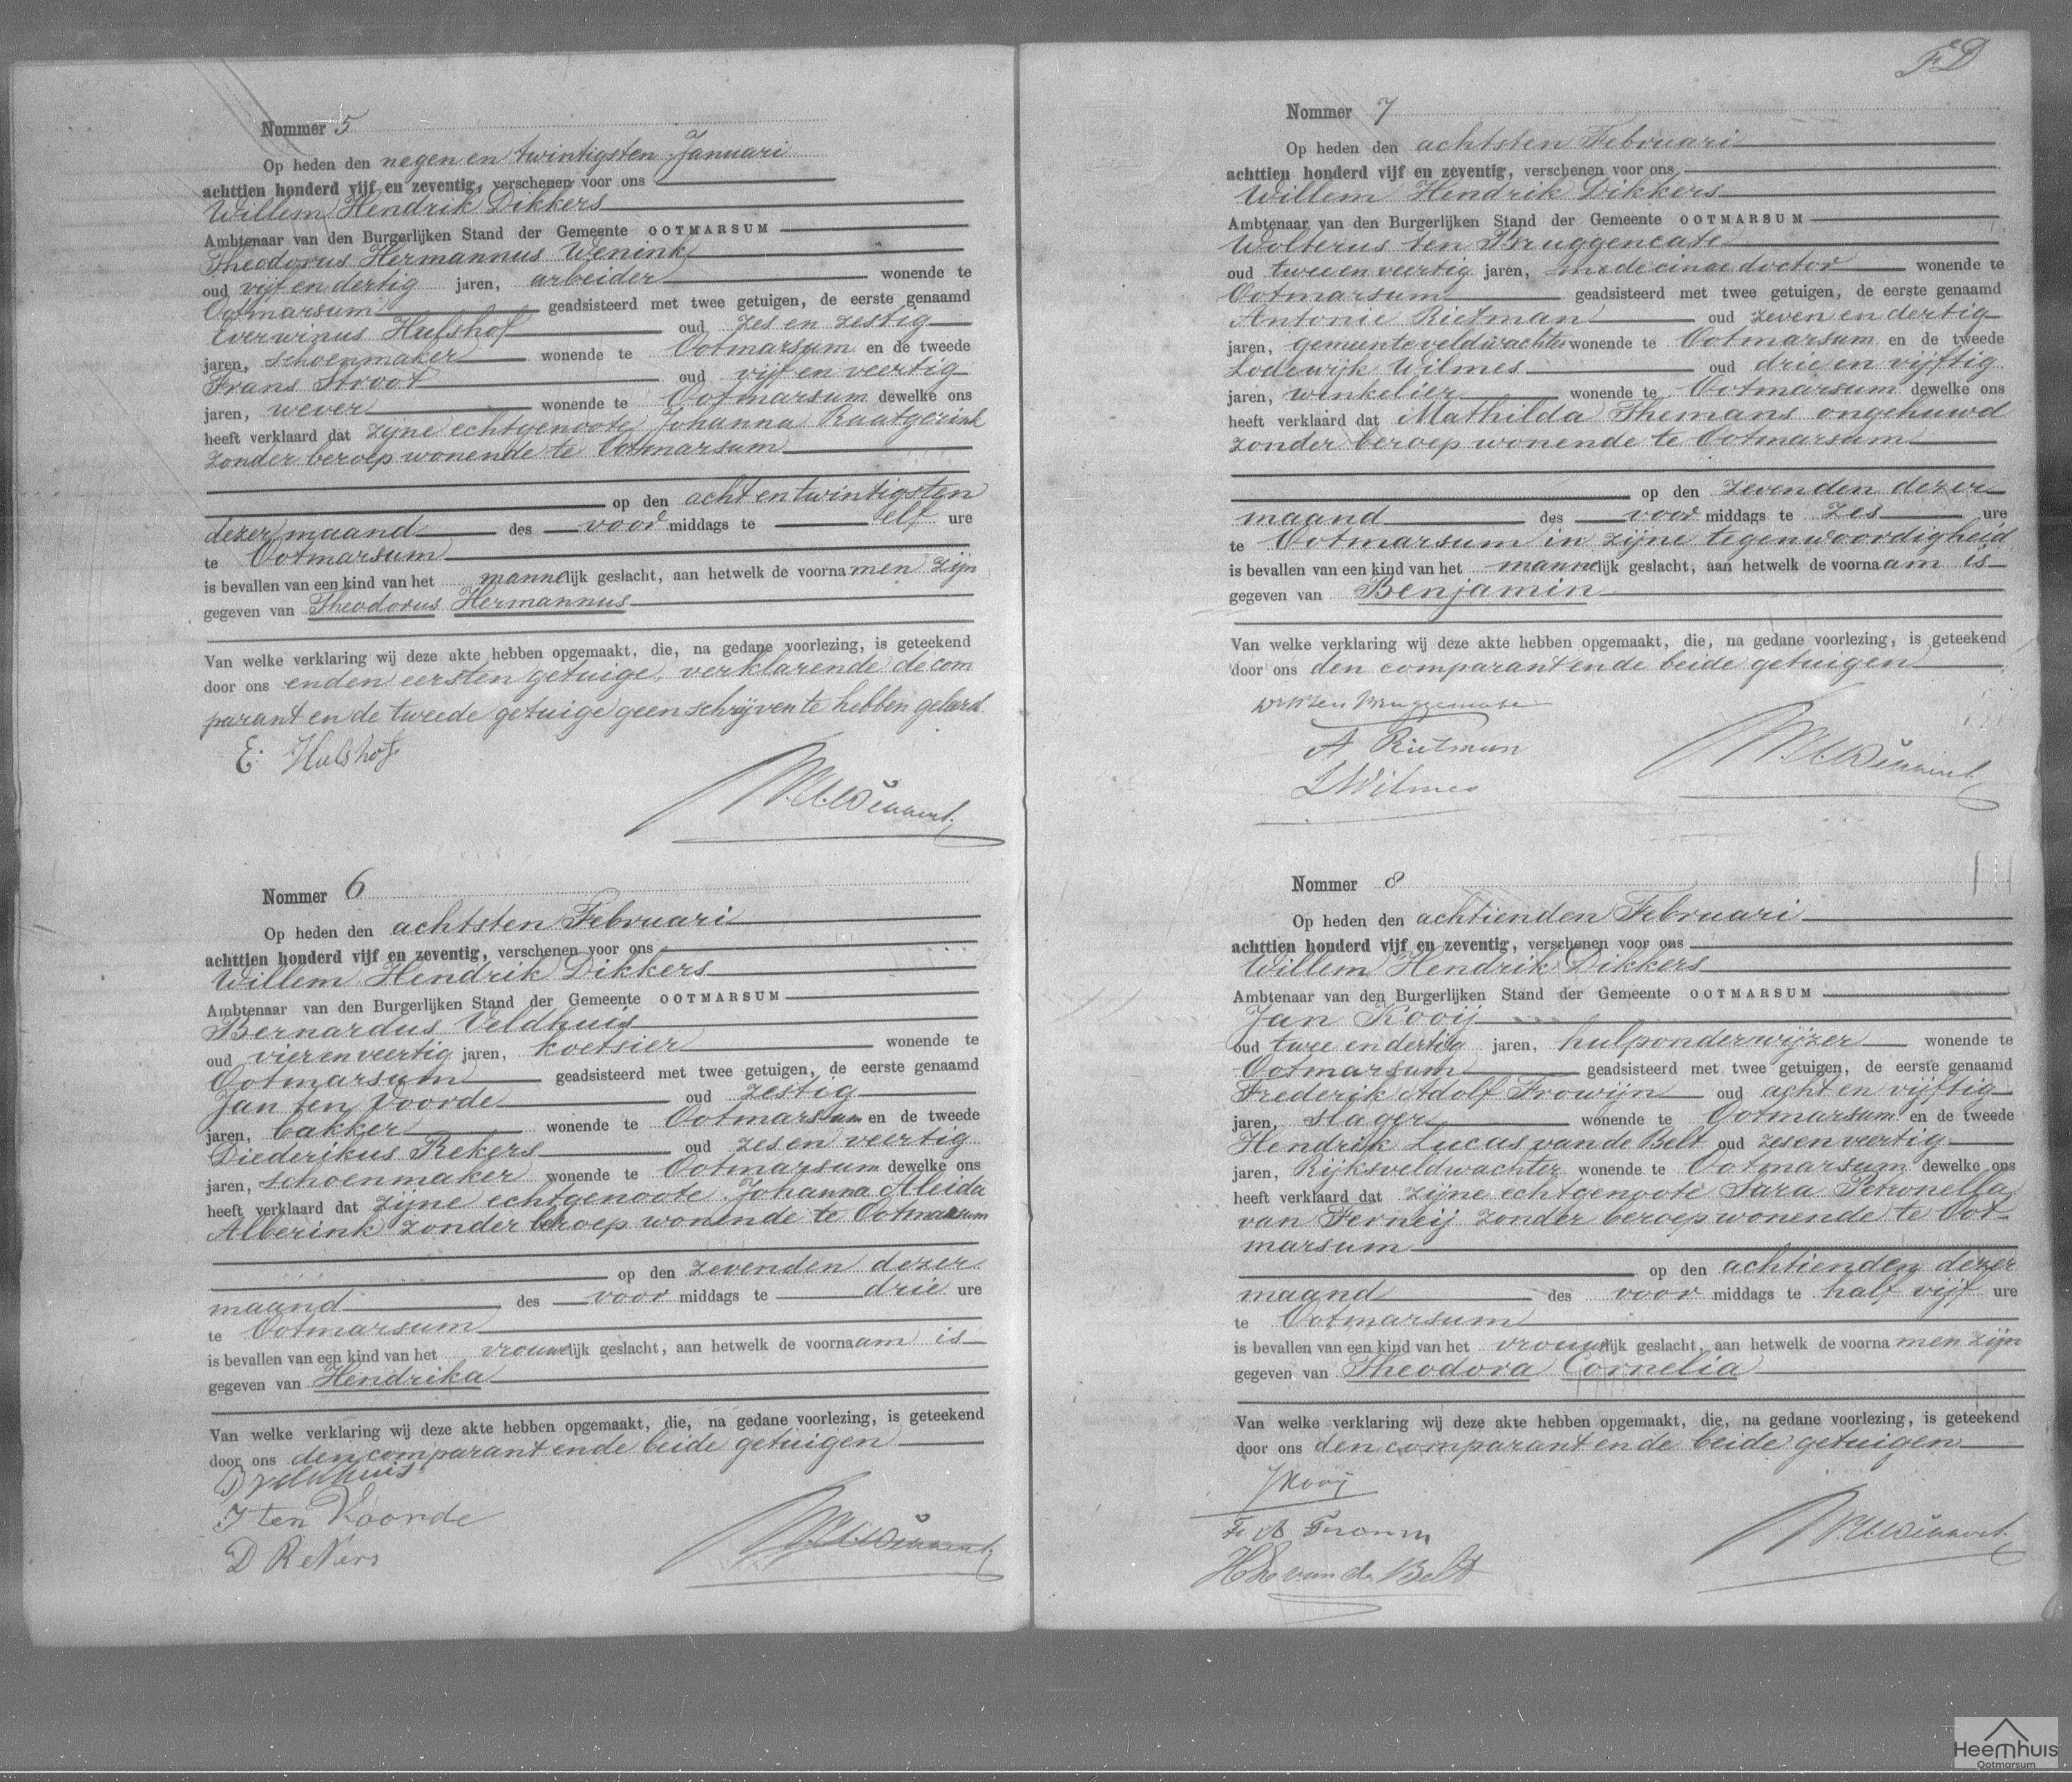 Nommer 5
Op heden den negen en twintigsten Januari
achttien honderd vijf en zeventig, verschenen voor ons
Willem Hendrik Dikkers
Ambtenaar van den Burgerlijken Stand der Gemeente OOTMARSUM
Theodorus Hermannus Wenink
oud vijf en dertig jaren, arbeider wonende te
Ootmarsum geadsisteerd met twee getuigen, de eerste genaamd
Everwinus Hulshof oud zes en zestig
jaren, schoenmaker wonende te Ootmarsum en de tweede
Frans Stroot oud vijf en veertig
jaren, wever wonende te Ootmarsum dewelke ons
heeft verklaard dat zijne echtgenoote Johanna Raatgerink
zonder beroep wonende te Ootmarsum
op den acht en twintigsten
dezer maand des voor middags te elf ure
te Ootmarsum
is bevallen van een kind van het mannelijk geslacht, aan hetwelk de voornamen zijn
gegeven van Theodorus Hermannus
Van welke verklaring wij deze akte hebben opgemaakt, die, na gedane voorlezing, is geteekend
door ons en den eersten getuige, verklarende de com
parant en de tweede getuige geen schrijven te hebben geleerd.
E. Hulshof
Nommer 6
Op heden den achtsten Februari
achttien honderd vijf en zeventig, verschenen voor ons
Willem Hendrik Dikkers
Ambtenaar van den Burgerlijken Stand der Gemeente OOTMARSUM
Bernardus Veldhuis
oud vier en veertig jaren, koetsier wonende te
Ootmarsum geadsisteerd met twee getuigen, de eerste genaamd
Jan ten Voorde oud zestig
jaren, bakker wonende te Ootmarsum en de tweede
Diederikus Rekers oud zes en veertig
jaren, schoenmaker wonende te Ootmarsum dewelke ons
heeft verklaard dat zijne echtgenoote Johanna Aleida
Alberink zonder beroep wonende te Ootmarsum
op den zevenden dezer
maand des voor middags te drie ure
te Ootmarsum
is bevallen van een kind van het vrouwelijk geslacht, aan hetwelk de voornaam is
gegeven van Hendrika
Van welke verklaring wij deze akte hebben opgemaakt, die, na gedane voorlezing, is geteekend
door ons den comparant en de beide getuigen
B Veldhuis
J ten Voorde
D Rekers
FD
Nommer 7
Op heden den achtsten Februari
achttien honderd vijf en zeventig, verschenen voor ons
Willem Hendrik Dikkers
Ambtenaar van den Burgerlijken Stand der Gemeente OOTMARSUM
Wolterus ten Bruggencate
oud twee en veertig jaren, medecinae doctor wonende te
Ootmarsum geadsisteerd met twee getuigen, de eerste genaamd
Antonie Rietman oud zeven en dertig
jaren, gemeente veldwachter wonende te Ootmarsum en de tweede
Lodewijk Wilmes oud drie en vijftig
jaren, winkelier wonende te Ootmarsum dewelke ons
heeft verklaard dat Mathilda Themans ongehuwd
zonder beroep wonende te Ootmarsum
op den zevenden dezer
maand des voor middags te zes ure
te Ootmarsum in zijne tegenwoordigheid
is bevallen van een kind van het mannelijk geslacht, aan hetwelk de voornaam is
gegeven van Benjamin
Van welke verklaring wij deze akte hebben opgemaakt, die, na gedane voorlezing, is geteekend
door ons den comparant en de beide getuigen
ten Bruggencate
A Rietman
L Wilmes
Nommer 8
Op heden den achtienden Februari
achttien honderd vijf en zeventig, verschenen voor ons
Willem Hendrik Dikkers
Ambtenaar van den Burgerlijken Stand der Gemeente OOTMARSUM
Jan Kooij
oud twee en dertig jaren, hulponderwijzer wonende te
Ootmarsum geadsisteerd met twee getuigen, de eerste genaamd
Frederik Adolf Frowijn oud acht en vijftig
jaren, slager wonende te Ootmarsum en de tweede
Hendrik Lucas van de Belt oud zes en veertig
jaren, Rijksveldwachter wonende te Ootmarsum dewelke ons
heeft verklaard dat zijne echtgenoote Sara Petronella
van Ferneij zonder beroep wonende te Oot
marsum
op den achtienden dezer
maand des voor middags te half vijf ure
te Ootmarsum
is bevallen van een kind van het vrouwelijk geslacht, aan hetwelk de voornamen zijn
gegeven van Theodora Cornelia
Van welke verklaring wij deze akte hebben opgemaakt, die, na gedane voorlezing, is geteekend
door ons den comparant en de beide getuigen
J Kooij
F A Frowijn
H L van de Belt
Heemhuis
Ootmarsum